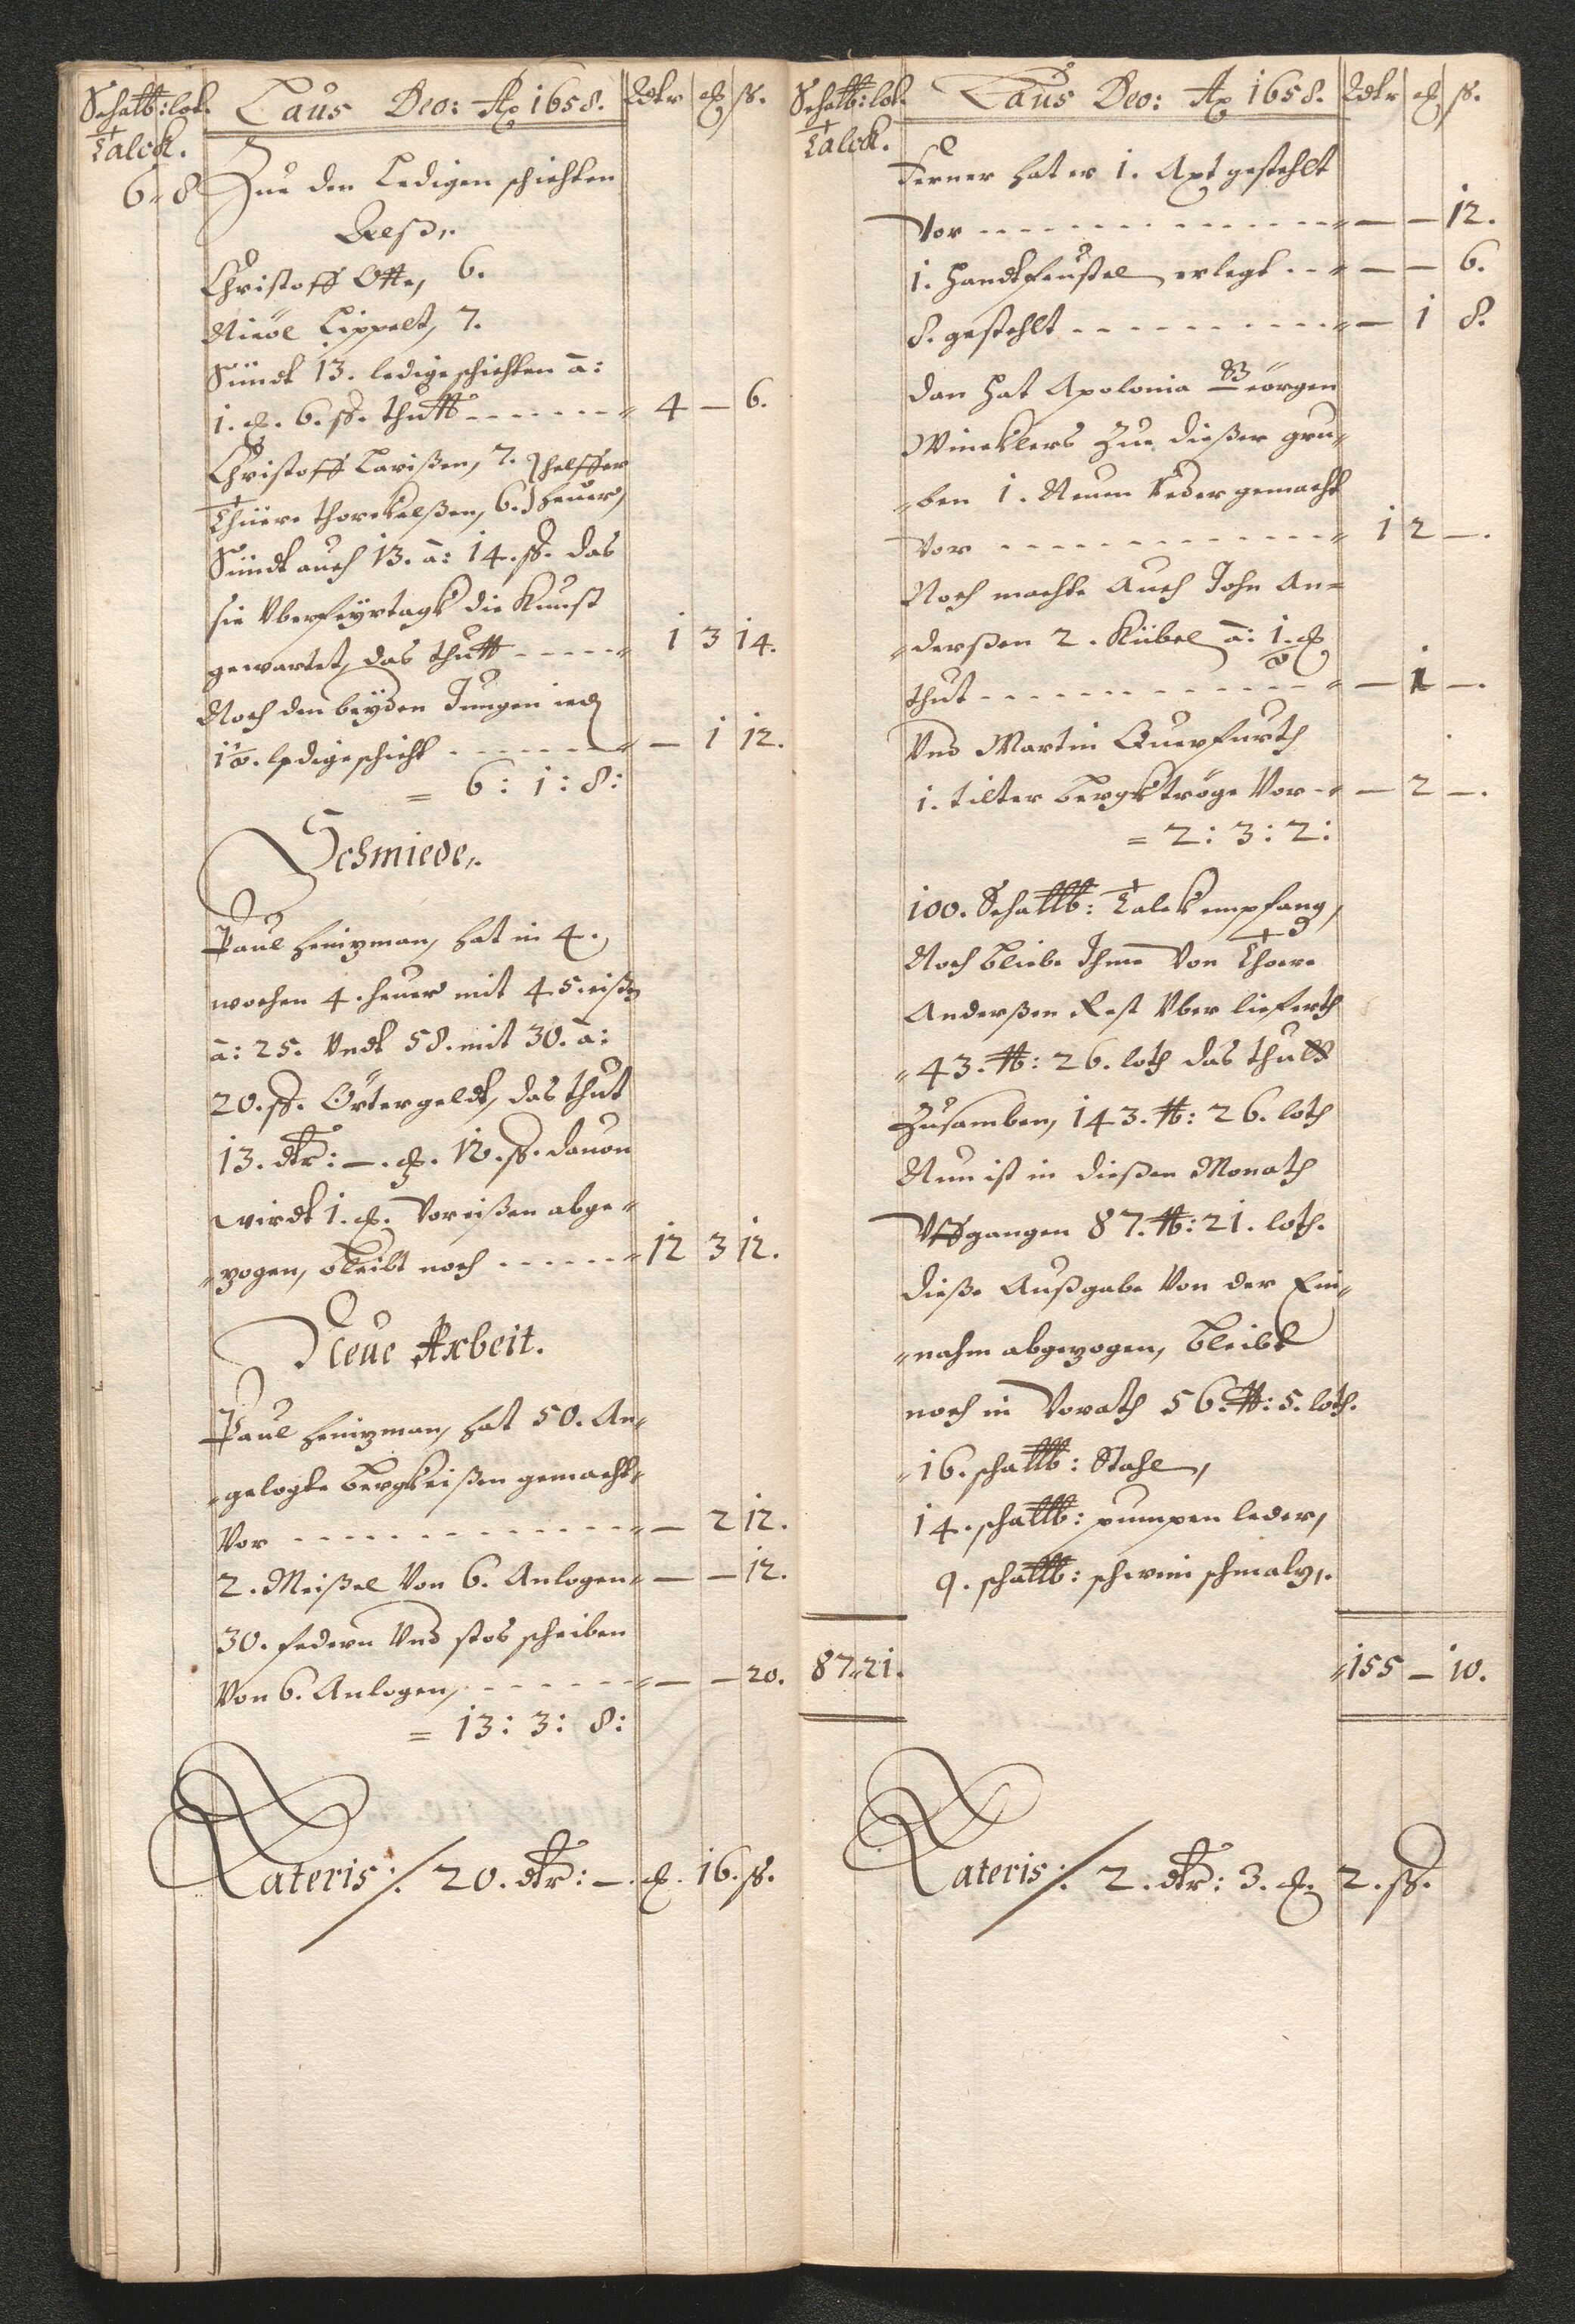 Schalb: lot. Laus Deo: Ao 1658. Rdtr ƶ ß.
Talck.
6 " 8 Zue den Ledigen schichten
Christoff Otte, 6.
Nicol Lippelt, 7.
Sündt 13. ledige schichten à:
1. ƶ. 6. ß. thutt - - - - - - " 4 — 6.
Christoff Larißen, 7. } helffer
Thüere Thorckelßen, 6. } heuer,
Sündt auch 13. à: 14. ß. das
sie Vber feyrtagk die Kunst
gewartet, das thutt - - - - - " 1 3 14.
Noch den beyden Jungen ied
1½. ledige schicht - - - - - - " — 1 12.
= 6 : 1 : 8 :
Schmiede,.
Paul heinzman, hat in 4.
wochen 4. heuer mit 45. eißen
à: 25. Vndt 58. mit 30. à:
20. ß. Örtergeldt, das thut
13. dtr: —. ƶ. 12. ß. dauon
wirdt 1. ƶ. Vor eißen abge"
"zogen, bleibt noch - - - - - - " 12 3 12.
Neue Arbeit.
Paul heinzman, hat 50. An"
"gelogte bergkeißen gemacht,
Vor - - - - - - - - - - - - " — 2 12.
2. Meißel Von 6. Anlogen " — — 12.
30. federn Vnd stos scheiben
Von 6. Anlogen, - - - - - - " — — 20.
= 13 : 3 : 8 :
Lateris:/. 20. dtr: —. ƶ. 16. ß.
Schalb: lot. Laus Deo: Ao 1658. Rdtr ƶ ß.
Talck.
Ferner hat er 1. Axt gestehlt
Vor - - - - - - - - - - - - " — — 12.
1. handtfeustel erlegt - - " — — 6.
8. gestehlt - - - - - - - - - " — 1 8.
dan hat Apolonia Georgen
Wincklers Zue dießer gru"
"ben 1. Neuen Leder gemacht
Vor - - - - - - - - - - - - " 1 2 —.
Noch machte Auch John An=
"derßen 2. Kübel à: ½. ƶ
thut - - - - - - - - - - - - " — 1 —.
Vnd Martin Querfurth
1. tilter bergktröge Vor - " — 2 —.
= 2 : 3 : 2 :
100. Schalb: Talck empfang,
Noch bliebe Ihme Von Thoere
Anderßen Rest Vber lieferth
"43. lb: 26. loth das thutt
Zusamben, 143. lb: 26. loth
Nun ist in dießen Monath
Vffgangen 87. lb: 21. loth.
dieße Außgabe Von der Ein"
"nahm abgezogen, bleibt
noch in Vorath 56. lb: 5. loth.
"16. schalb: Stahl,
14. schalb: pumpen leder,
9. schalb: schwein schmalz,.
87 " 21. " 155 — 10.
Lateris:/. 2. dtr: 3. ƶ. 2. ß.